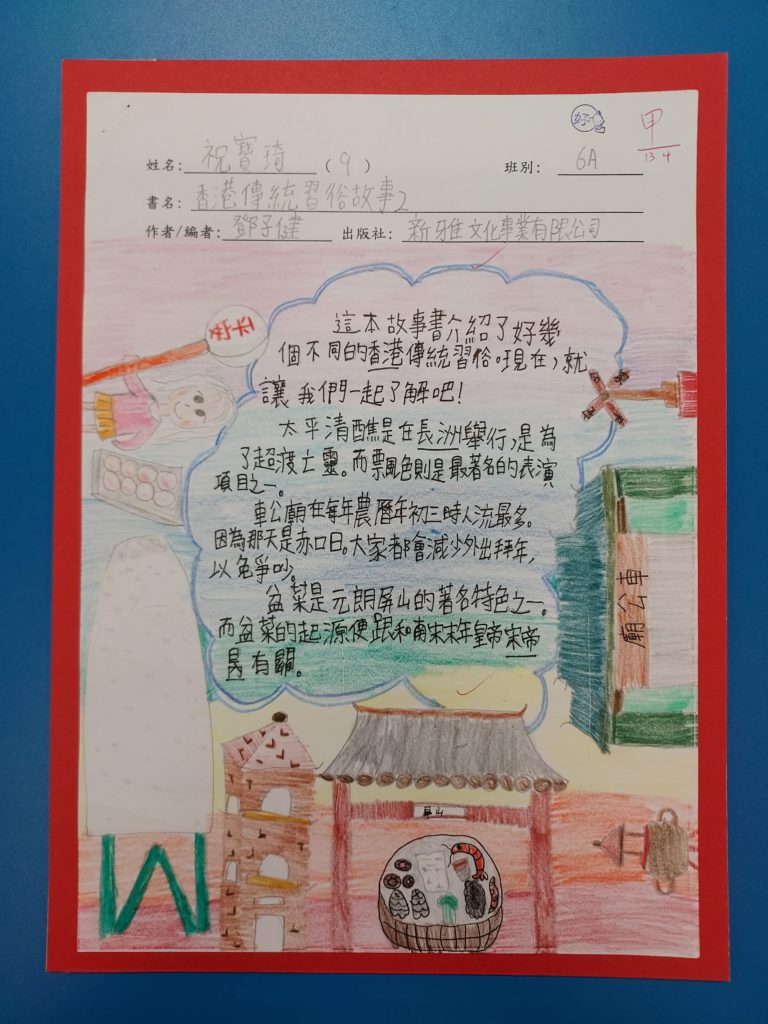 好
甲
13 4
姓名: 祝寶琦 (9) 班別: 6A
書名: 香港傳統習俗故事2
作者/編者: 鄧子健 出版社: 新雅文化事業有限公司
這本故事書介紹了好幾
個不同的香港傳統習俗。現在,就
讓我們一起了解吧!
太平清醮是在長洲舉行,是為
了超渡亡靈。而票風色則是最著名的表演
項目之一。
車公廟在每年農曆年初三時人流最多。
因為那天是赤口日。大家都會減少外出拜年,
以免爭吵。
盆菜是元朗屏山的著名特色之一。
而盆菜的起源便跟和南宋末年皇帝宋帝
昺有關。
車公廟
屏山